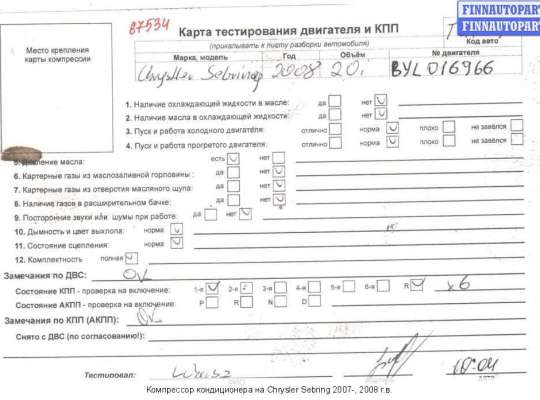 FINNAUTOPART
FINNAUTOPART
67534
Карта тестирования двигателя и КПП
(прикалывать к листу разборки автомобиля)
Код авто
Место крепления карты компрессии
Марка, модель Год Объём № двигателя
Chrysler Sebring 2008 2.0i BYL016966
1. Наличие охлаждающей жидкости в масле: да нет
2. Наличие масла в охлаждающей жидкости: да нет
3. Пуск и работа холодного двигателя: отлично норма плохо не завёлся
4. Пуск и работа прогретого двигателя: отлично норма плохо не завёлся
5. Давление масла: есть нет
6. Картерные газы из маслозаливной горловины : да нет
7. Картерные газы из отверстия масляного щупа: да нет
8. Наличие газов в расширительном бачке: да нет
9. Посторонние звуки или шумы при работе: да нет
10. Дымность и цвет выхлопа: норма
11. Состояние сцепления: норма
12. Комплектность полная
Замечания по ДВС:
Состояние КПП - проверка на включение: 1-я 2-я 3-я 4-я 5-я 6-я R x6
Состояние АКПП - проверка на включение: P R N D
Замечания по КПП (АКПП):
Снято с ДВС (по согласованию!):
Тестировал:
10-04
Компрессор кондиционера на Chrysler Sebring 2007-, 2008 г.в.